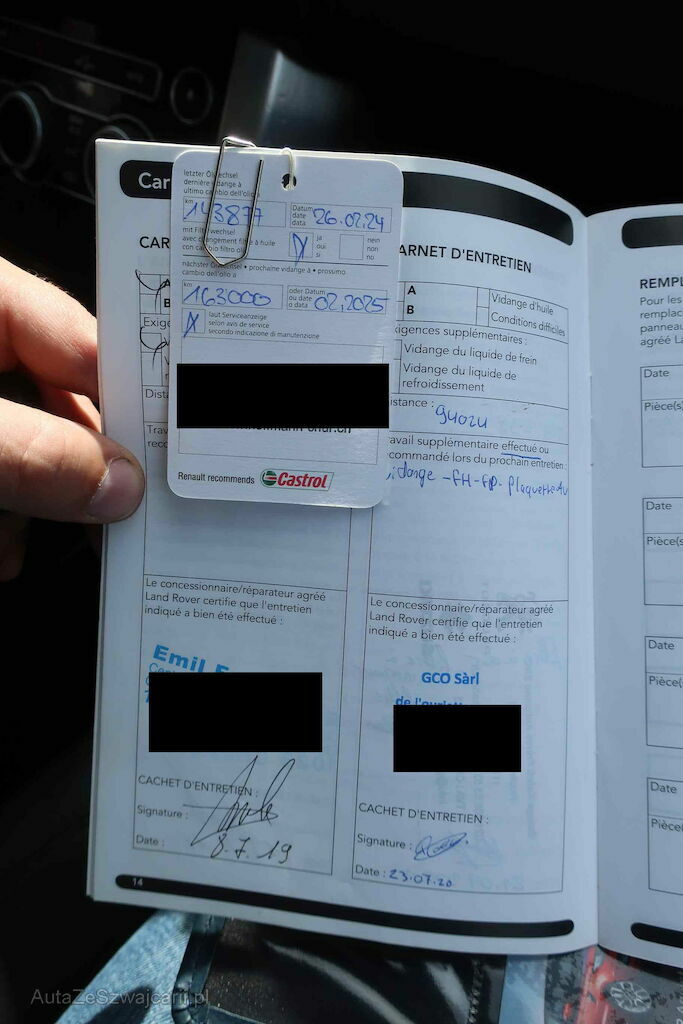 Car
letzter Ölwechsel
dernière vidange à
ultimo cambio dell'olio
km
143877
Datum
date
data
26.02.24
mit Filterwechsel
avec changement filtre à huile
con cambio filtro olio
X
ja
oui
si
nein
non
no
nächster Ölwechsel • prochaine vidange à • prossimo
cambio dell'olio a
km
163000
oder Datum
ou date
o data
02.2025
X
laut Serviceanzeige
selon avis de service
secondo indicazione di manutenzione
Renault recommends
Castrol
CAR
B
Exige
Dista
Trav
rec
Le concessionnaire/réparateur agréé
Land Rover certifie que l'entretien
indiqué a bien été effectué :
Emil
CACHET D'ENTRETIEN :
Signature :
Date : 8.7.19
14
ARNET D'ENTRETIEN
A
B
Vidange d'huile
Conditions difficiles
xigences supplémentaires :
Vidange du liquide de frein
Vidange du liquide de
refroidissement
istance : 94024
avail supplémentaire effectué ou
commandé lors du prochain entretien :
idange - FH - FP - plaquette AV
Le concessionnaire/réparateur agréé
Land Rover certifie que l'entretien
indiqué a bien été effectué :
GCO Sàrl
CACHET D'ENTRETIEN :
Signature :
Date : 23.07.20
REMPL
Pour les
remplac
panneau
agréé L
Date
Pièce(s
Date
Pièce(s
Date
Pièce(s
Date
Pièce(s
AutaZeSzwajcarii.pl